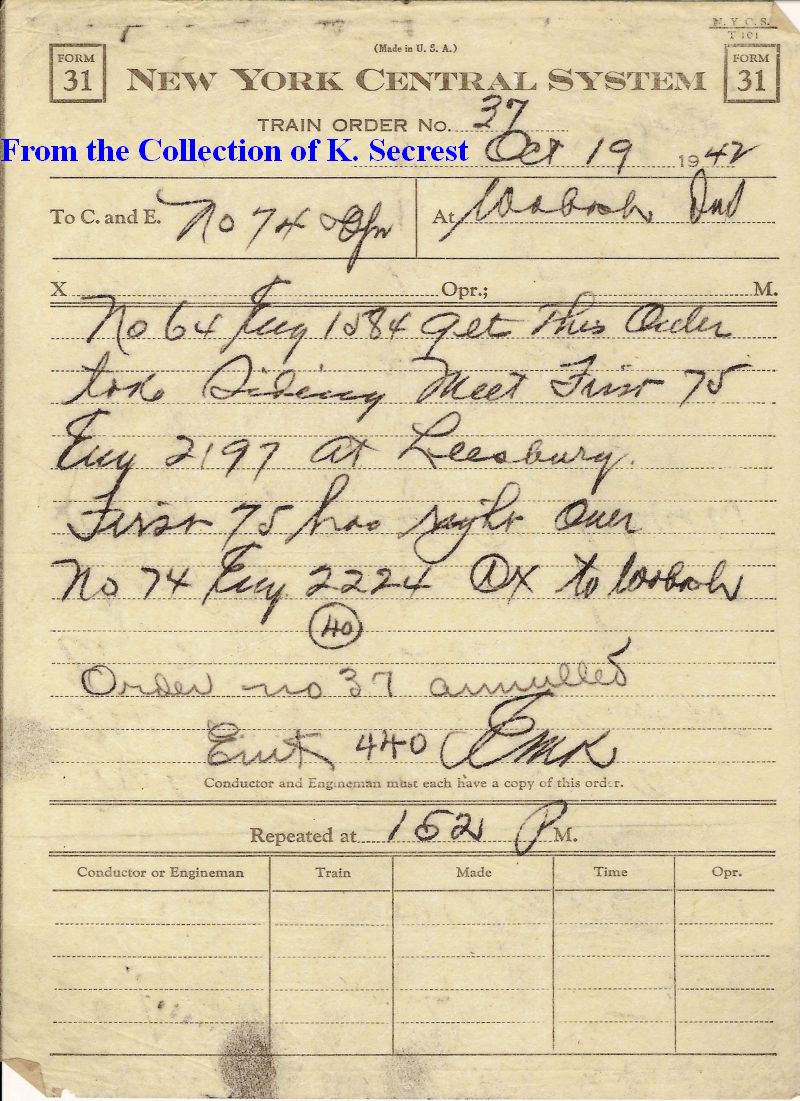 N. Y. C. S.
T 101
(Made in U. S. A.)
FORM 31 NEW YORK CENTRAL SYSTEM FORM 31
TRAIN ORDER No. 37
From the Collection of K. Secrest Oct 19 1942
To C. and E. No 74 At Wabash Ind
X Opr.; M.
No 64 Eng 1584 get This Order
take Siding Meet First 75
Eng 2197 at Leesburg.
First 75 has right over
No 74 Eng 2224 DX to Wabash
40
Order no 37 annulled
440 EMK
Conductor and Engineman must each have a copy of this order.
Repeated at 152 P M.
Conductor or Engineman Train Made Time Opr.